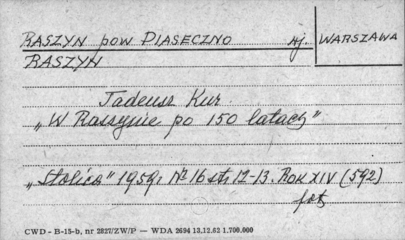 RASZYN pow PIASECZNO wj. WARSZAWA
RASZYN
Tadeusz Kur
„W Raszynie po 150 latach"
„Stolica" 1959r Nº 16 str 12-13. Rok XIV (592)
fot
CWD - B-15-b, nr 2827/ZW/P — WDA 2694 13.12.62 1.700.000